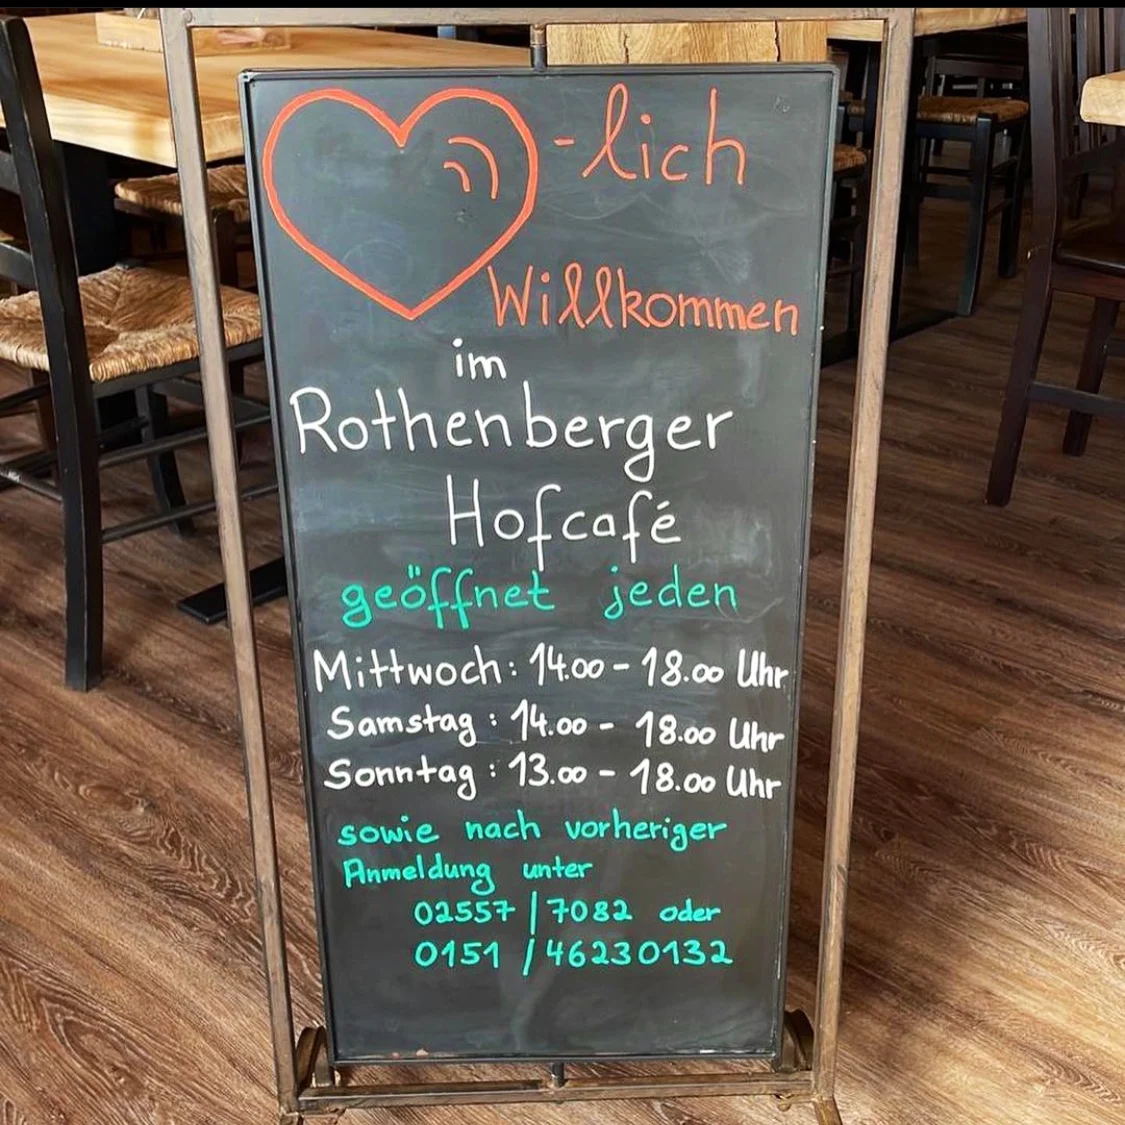 -lich
Willkommen
im
Rothenberger
Hofcafé
geöffnet jeden
Mittwoch: 14.00 - 18.00 Uhr
Samstag: 14.00 - 18.00 Uhr
Sonntag: 13.00 - 18.00 Uhr
sowie nach vorheriger
Anmeldung unter
02557 / 7082 oder
0151 / 46230132